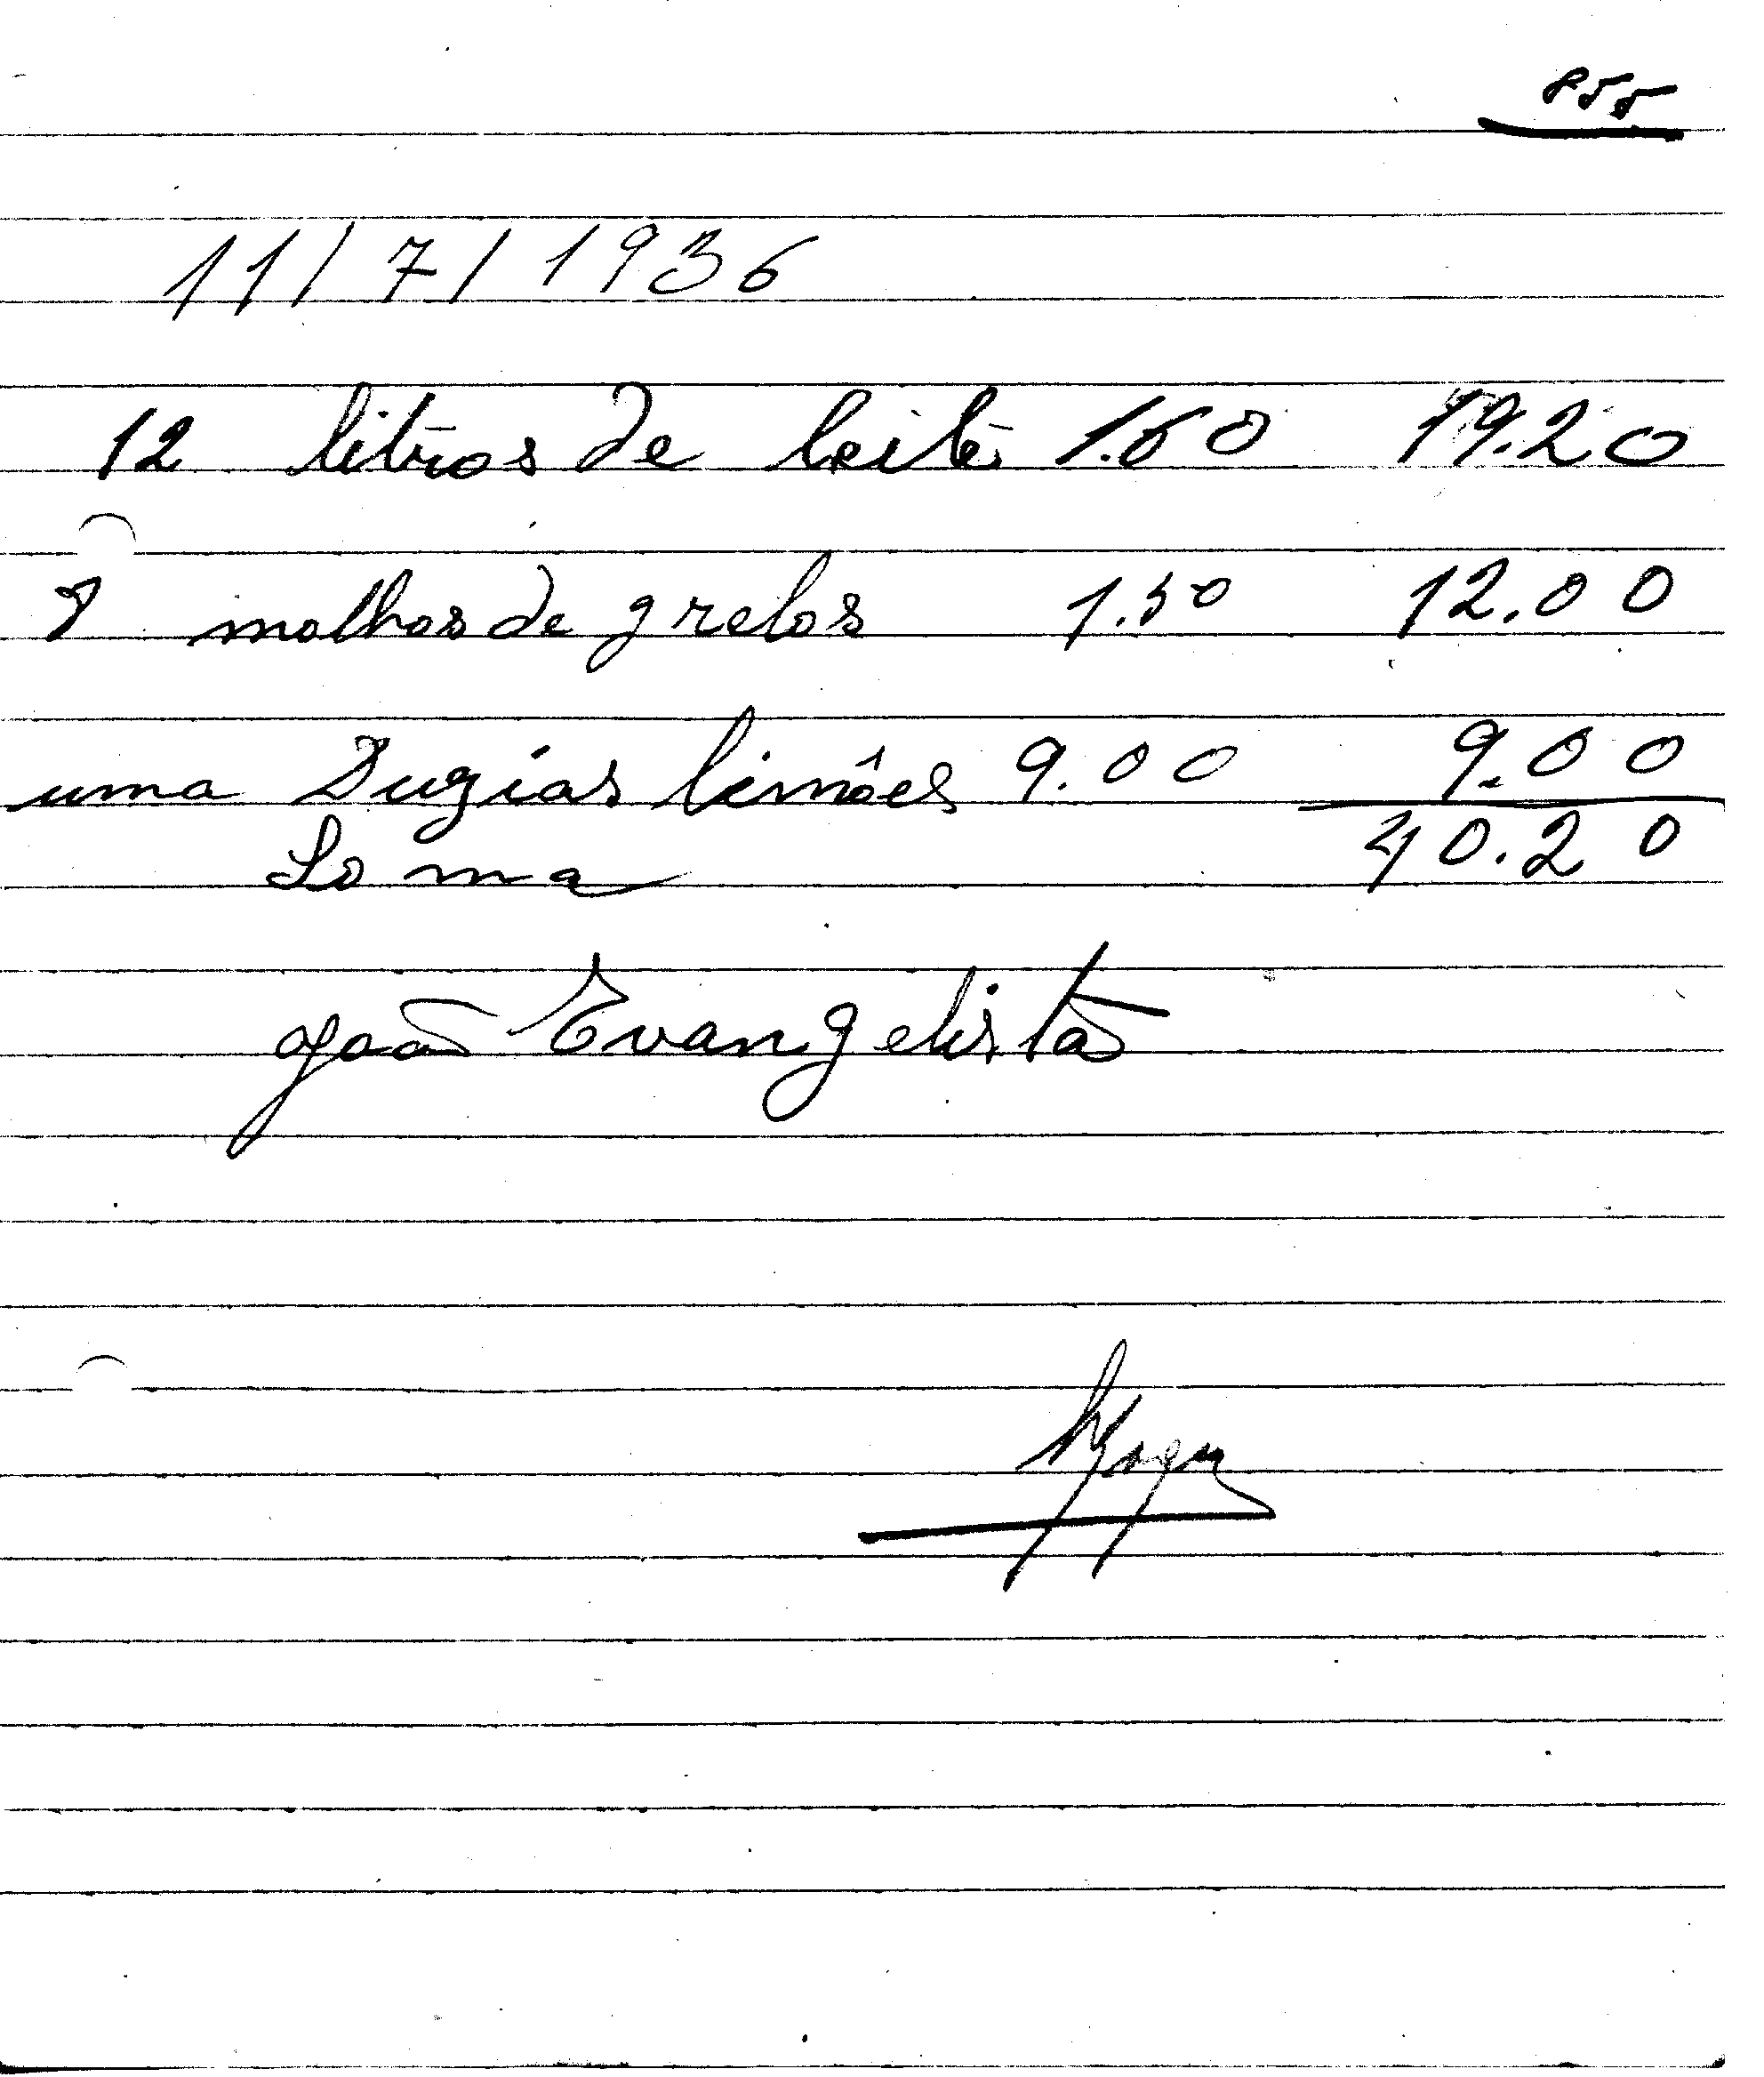 855
11/7/1936
12 litros de leite 1.60 19.20
8 molhos de grelos 1.50 12.00
uma Duzias limões 9.00 9.00
Soma 40.20
João Evangelista